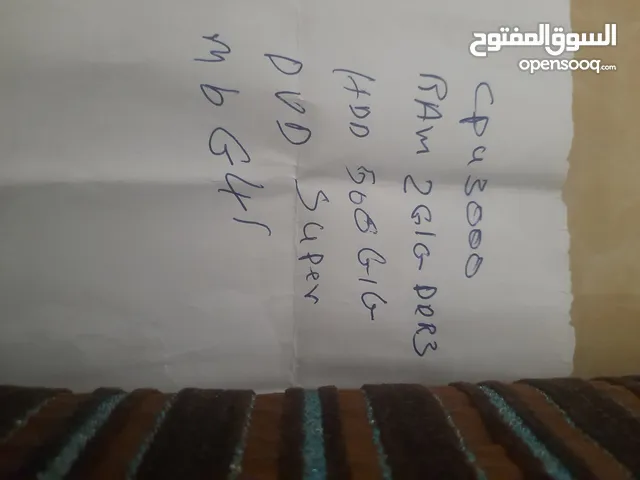 السوق المفتوح
opensooq.com
Cpu 3000
RAM 2GIG DDR3
HDD 500 GIG
DVD Super
mb G41